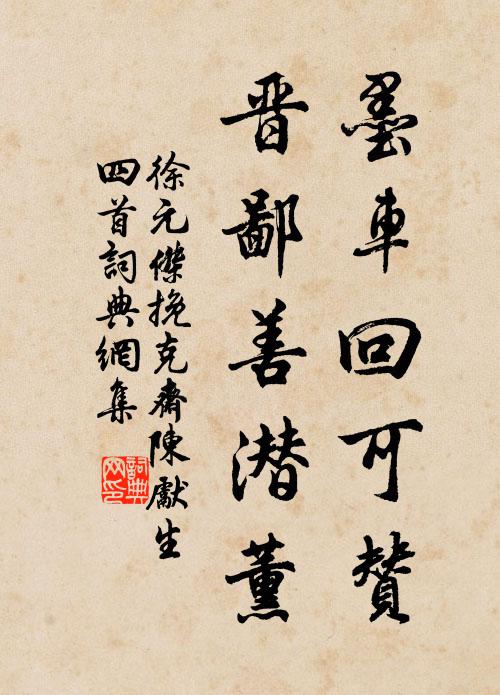 墨車回可贊
晋鄙善潜薰
徐元傑挽克齋陳獻生
四首詞典網集
詞典
网印